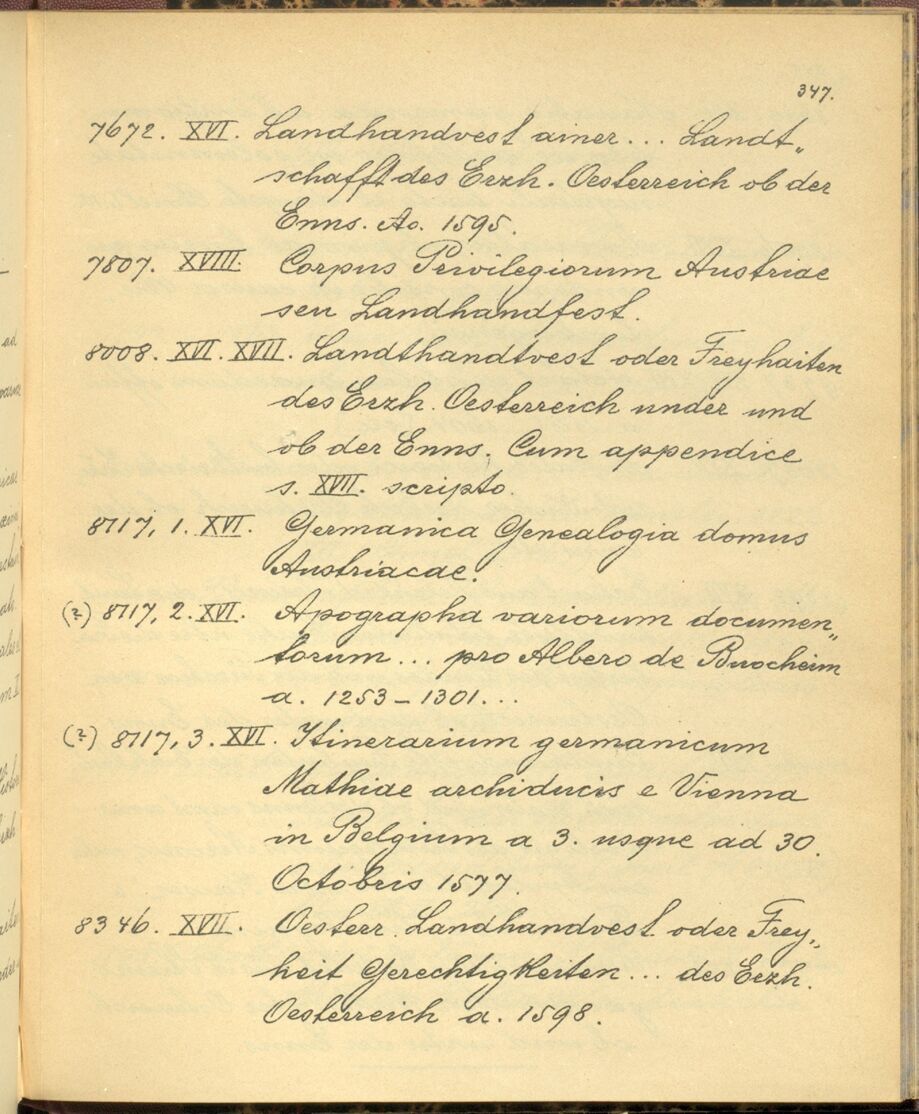 347.
7672. XVI. Landhandvest ainer... Landt„
schafft des Erzh. Oesterreich ob der
Enns. Ao. 1595.
7807. XVIII. Corpus Privilegiorum Austriae
seu Landhandfest.
8008. XVI. XVII. Landthandtvest oder Freyhaiten
des Erzh. Oesterreich under und
ob der Enns. Cum appendice
s. XVII. scripto.
8717, 1. XVI. Germanica Genealogia domus
Austriacae.
(?) 8717, 2. XVI. Apographa variorum documen„
torum... pro Albero de Buocheim
a. 1253–1301...
(?) 8717, 3. XVI. Itinerarium germanicum
Mathiae archiducis e Vienna
in Belgium a 3. usque ad 30.
Octobris 1577.
8346. XVII. Oesterr. Landhandvest oder Frey„
heit Gerechtigkeiten... des Erzh.
Oesterreich a. 1598.